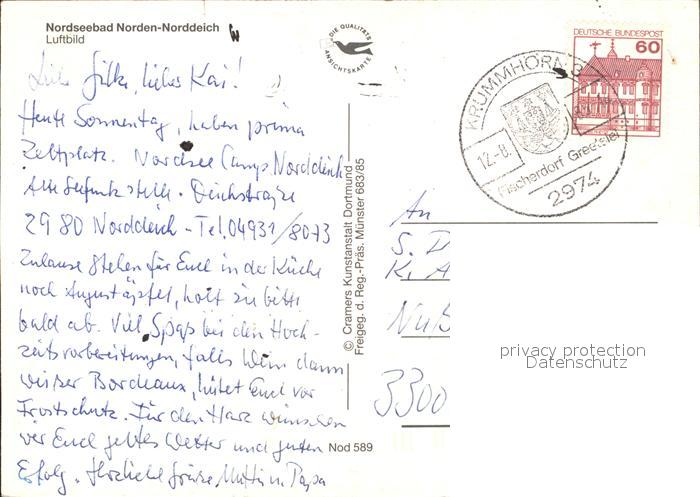 Nordseebad Norden-Norddeich
Luftbild
DIE QUALITÄTS
ANSICHTSKARTE
DEUTSCHE BUNDESPOST
60
KRUMMHÖRN 3
12.-8.
Fischerdorf Greetsiel
2974
Liebe Silke, lieber Kai!
Heute Sonnentag, haben prima
Zeltplatz. Nordsee Camp Norddeich
Alte Seefunkstelle. Deichstraße
2980 Norddeich - Tel. 04931/8073
Zuhause stehen für Euch in der Küche
noch Augustäpfel, holt sie bitte
bald ab. Viel Spaß bei den Hoch-
zeitsvorbereitungen, falls Wein dann
weißer Bordeaux, hütet Euch vor
Frostschutz. Für den Harz wünschen
wir Euch gutes Wetter und guten
Erfolg. Herzliche Grüße Mutti u. Papa
© Cramers Kunstanstalt Dortmund
Freigeg. d. Reg.-Präs. Münster 683/85
Nod 589
An
S. D
K. A
Nuß
3300
privacy protection
Datenschutz